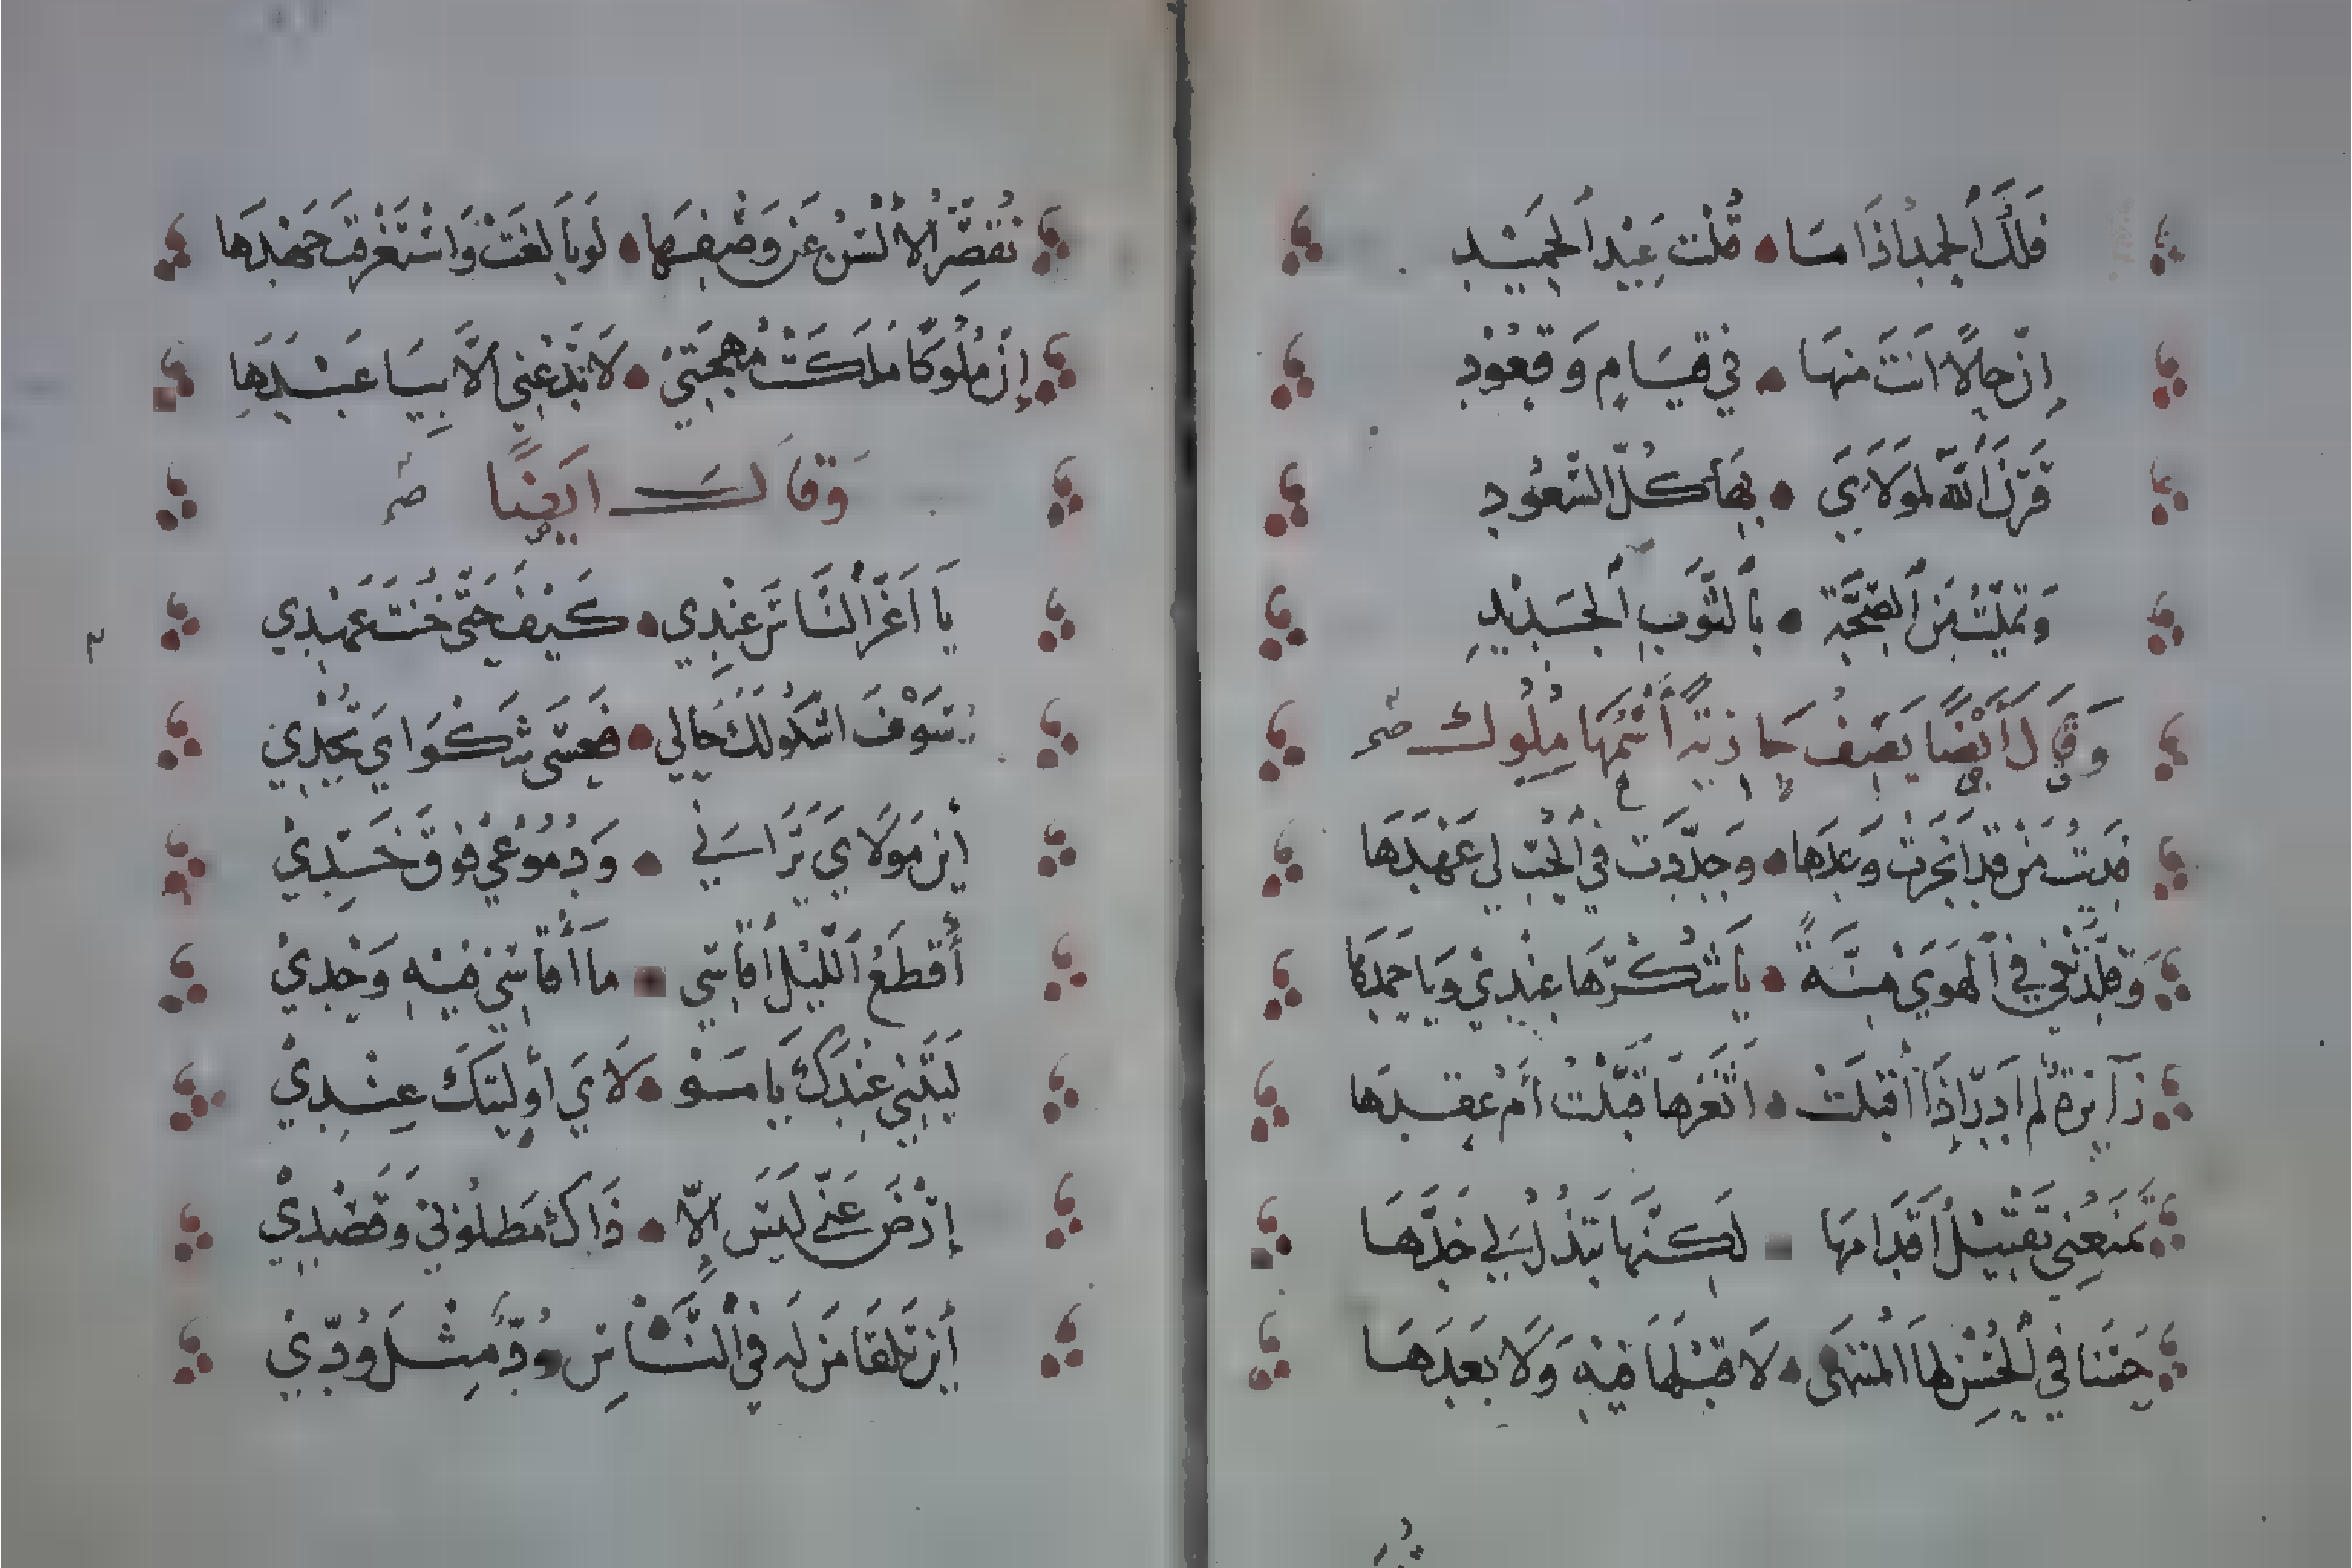 فَلَكَ الحمدُ اذَا مَا • قُلتَ عَبْدَ الحَمِيْدِ
إِنّ حِلًا انتَ منهَا • في قيَامٍ وَقعُوْدِ
قَرَنَ اللّهُ لمولَايَ • بِهَا كُلّ السُّعُودِ
وَتملّيتُ مَن الصِّحَّةِ • بالثَّوبِ الجَدِيْدِ
وَقَالَ أَيْضًا يَصِفُ جارِيَةً أسْمُهَا مُلُوك
فديتُ مَنْ قد انجَزَتْ وَعدَها • وجدّدت في الحُبّ لي عَهْدَهَا
وَقلّدَتْني في الهَوَى مِنَّةً • يَا شُكْرَهَا عِنْدِيْ وَيا حَمدَهَا
زَآئرةٌ لم ادرِ إِذَا أقبَلَتْ • اثَغْرَها قبّلتُ أمْ عِقدَها
تَمنَعُني تَقْبيْلَ أقْدَامهَا لَكِنَّهَا تبْذُلُ لي خدَّهَا
حَسْنَا في الحُسْنِ لها المنتهَى • لَا قبْلهَا فيْهِ وَلَا بَعدَهَا
تُقصِّرُ الألْسُنُ عَن وَصْفِهَا • لَو بَالغَتْ وَاسْتَغْرقَت جَهْدَها
إنّ مُلُوكًا مَلَكَتْ مُهجَتيْ • لَا تَدْعُني الّا بِيَا عَبْدَهَا
وَقَالَ ايَضًا
يَا اَعَزَّ النَّاسِ عِنْدِي • كَيْفَ حَتّى خُنتَ عَهْدِي
سَوْفَ اشكُو لكَ حَالي • فَعسَى شَكْوَايَ تُجْدِيْ
أيْن مَوْلَايَ يَرَانِي • وَدمُوعيْ فوْقَ خَدِّيْ
أقطَعُ اللّيْلَ أقاسِي مَا أقَاسِيْ فيْهِ وَحْدِيْ
لَيْتَني عِنْدَكَ يَا مَوْ • لَايَ اوْليتَكَ عِنْدِيْ
إرْضَ عَنّي لَيسَ الّا • ذَاكَ مَطلُوْبي وَقَصْدِيْ
أيْن تَلقَا مَن لَه في النَّاسِ وُدٌّ مِثلَ وُدّيْ